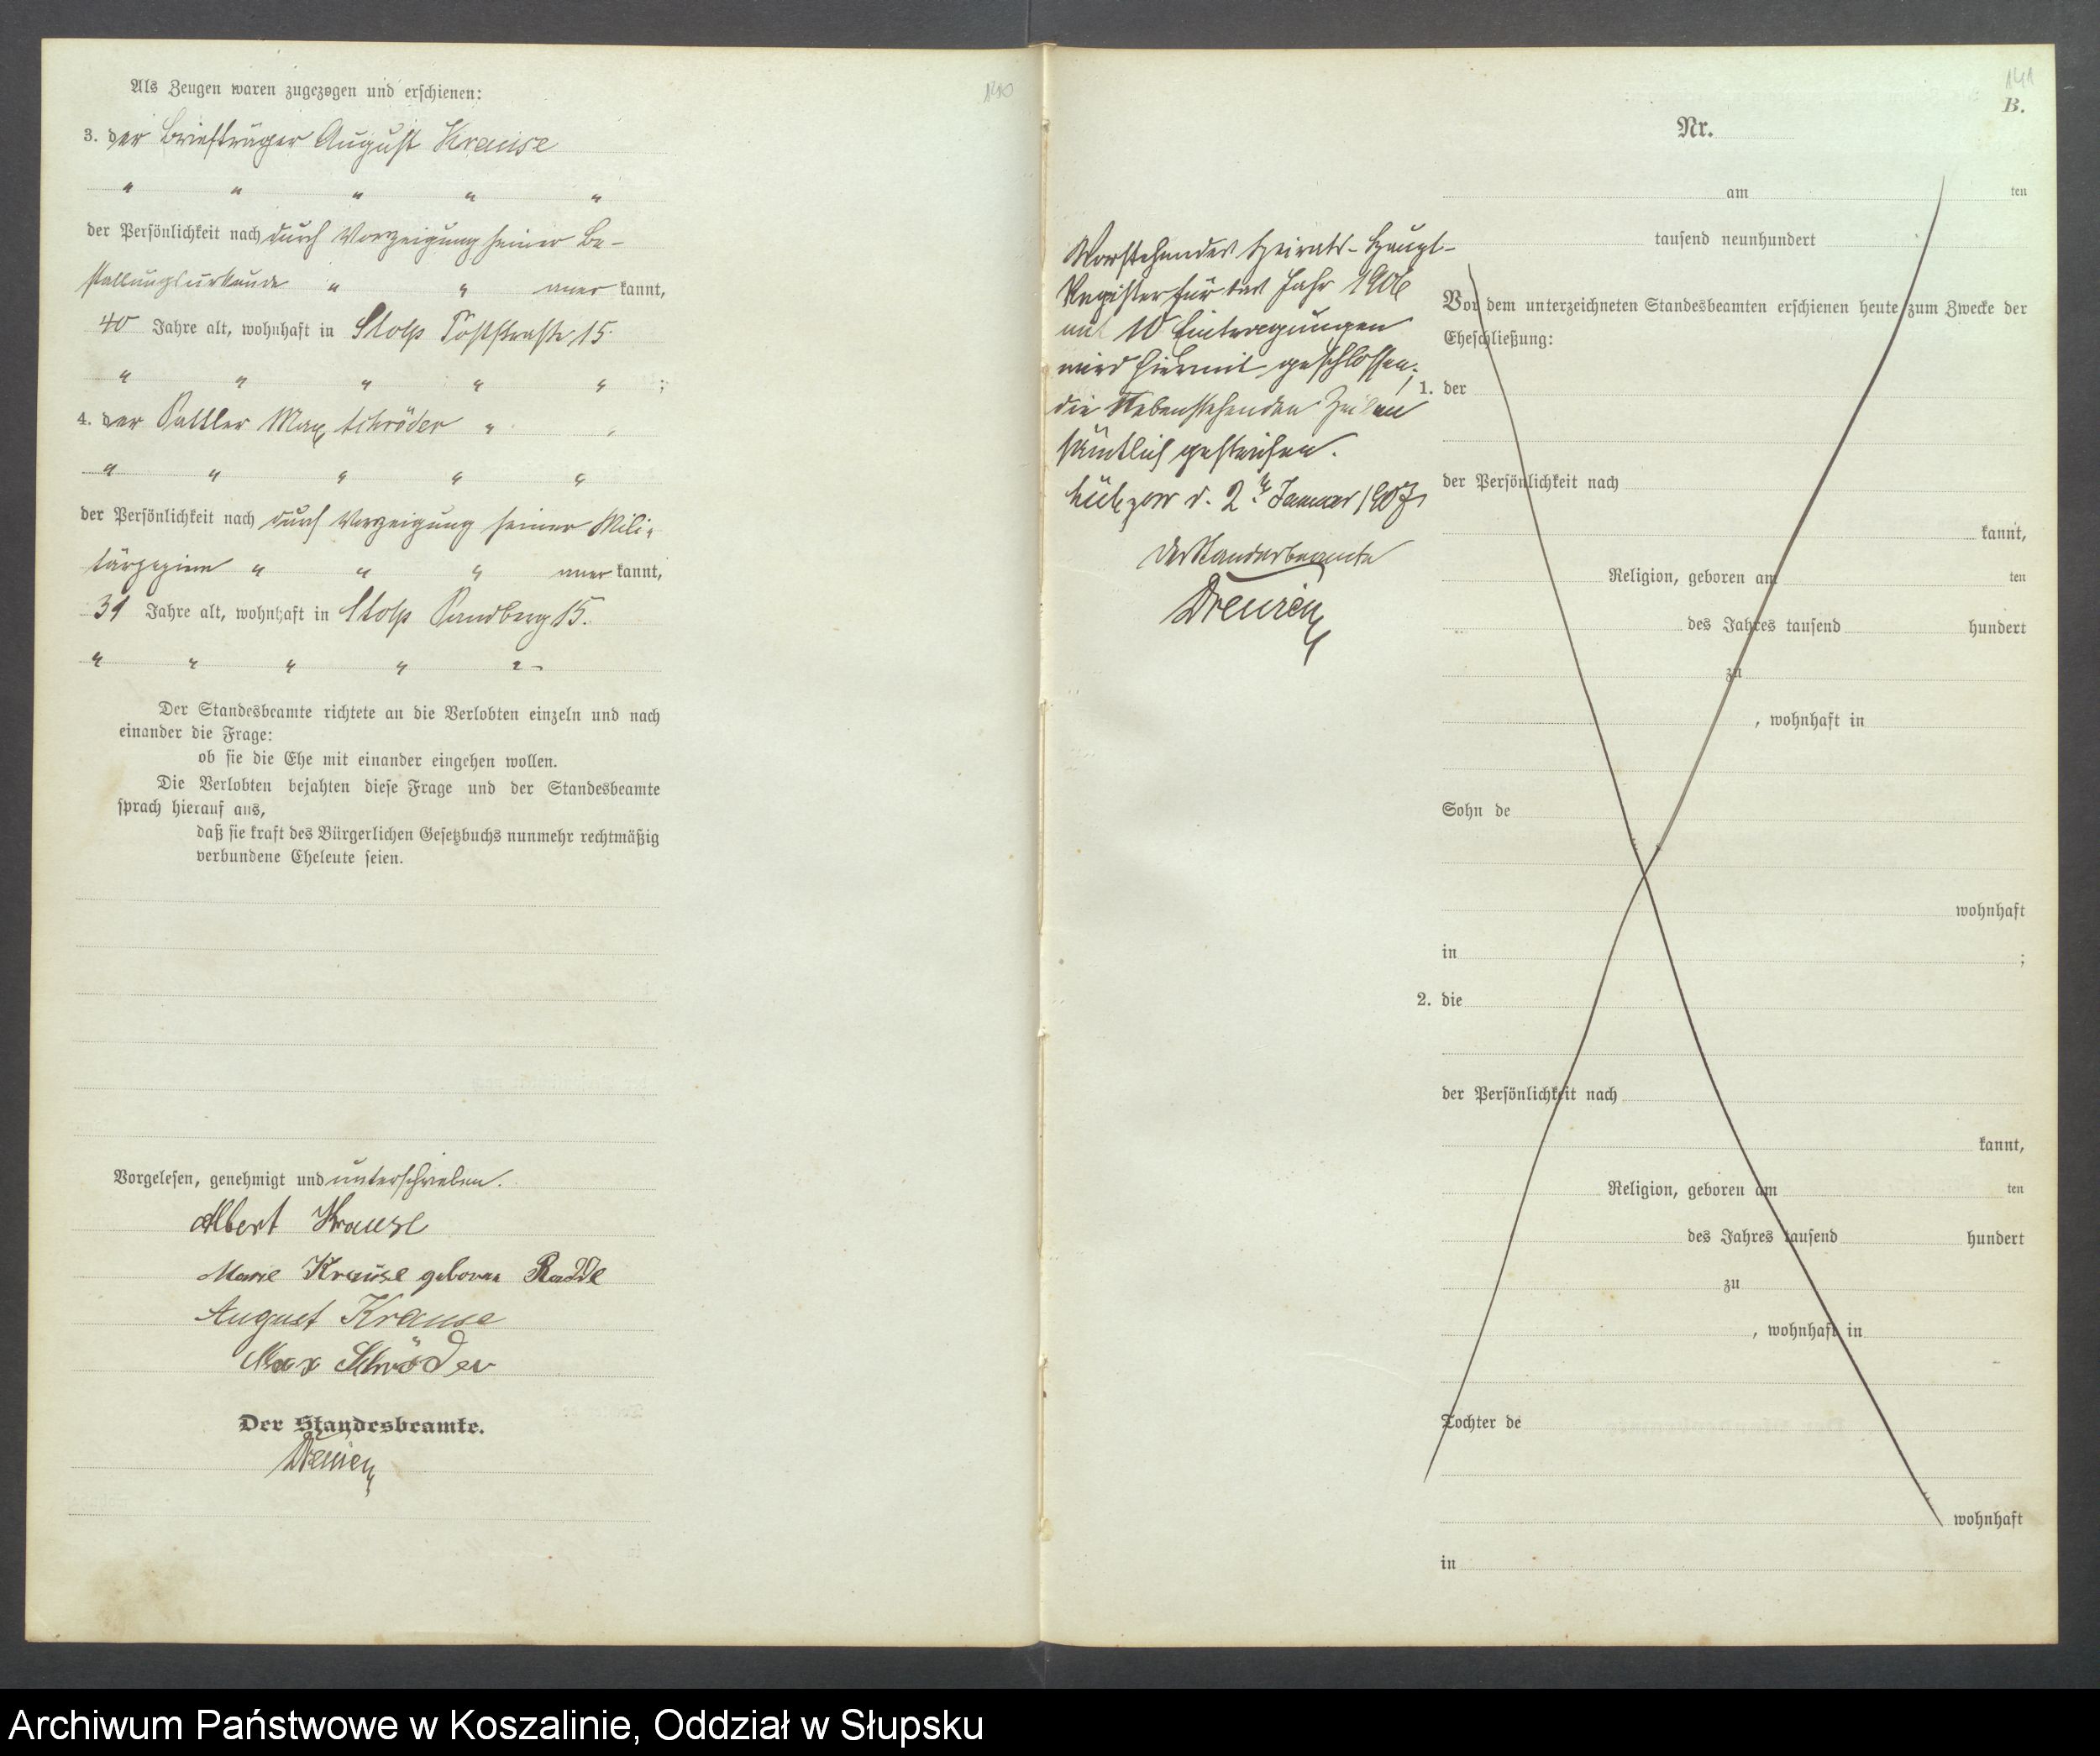 Als Zeugen waren zugezogen und erschienen:
3. der Briefträger August Krause
" " " " "
der Persönlichkeit nach durch Vorzeigung seiner Be-
stallungsurkunde " " aner kannt,
40 Jahre alt, wohnhaft in Stolp Poststraße 15.
" " " " " ;
4. der Sattler Max Schröder " "
" " " " "
der Persönlichkeit nach durch Vorzeigung seiner Mili-
" " " aner kannt,
31 Jahre alt, wohnhaft in Stolp Sandberg 15.
" " " " "
Der Standesbeamte richtete an die Verlobten einzeln und nach
einander die Frage:
ob sie die Ehe mit einander eingehen wollen.
Die Verlobten bejahten diese Frage und der Standesbeamte
sprach hierauf aus,
daß sie kraft des Bürgerlichen Gesetzbuchs nunmehr rechtmäßig
verbundene Eheleute seien.
Vorgelesen, genehmigt und unterschrieben.
Albert Krause
Marie Krause geborne Radde
August Krause
Max Schröder
Der Standesbeamte.
140
141
B.
Nr.
am ten
tausend neunhundert
Vorstehendes Heirats-Haupt-
Register für das Jahr 1906
mit 10 Eintragungen
wird hiermit geschlossen,
die Nebenstehenden Zeilen
sämtlich gestrichen.
d. 2. Januar 1907
Der Standesbeamte
Vor dem unterzeichneten Standesbeamten erschienen heute zum Zwecke der
Eheschließung:
1. der
der Persönlichkeit nach
kannt,
Religion, geboren am ten
des Jahres tausend hundert
zu
, wohnhaft in
Sohn de
wohnhaft
in ;
2. die
der Persönlichkeit nach
kannt,
Religion, geboren am ten
des Jahres tausend hundert
zu
, wohnhaft in
Tochter de
wohnhaft
in
Archiwum Państwowe w Koszalinie, Oddział w Słupsku